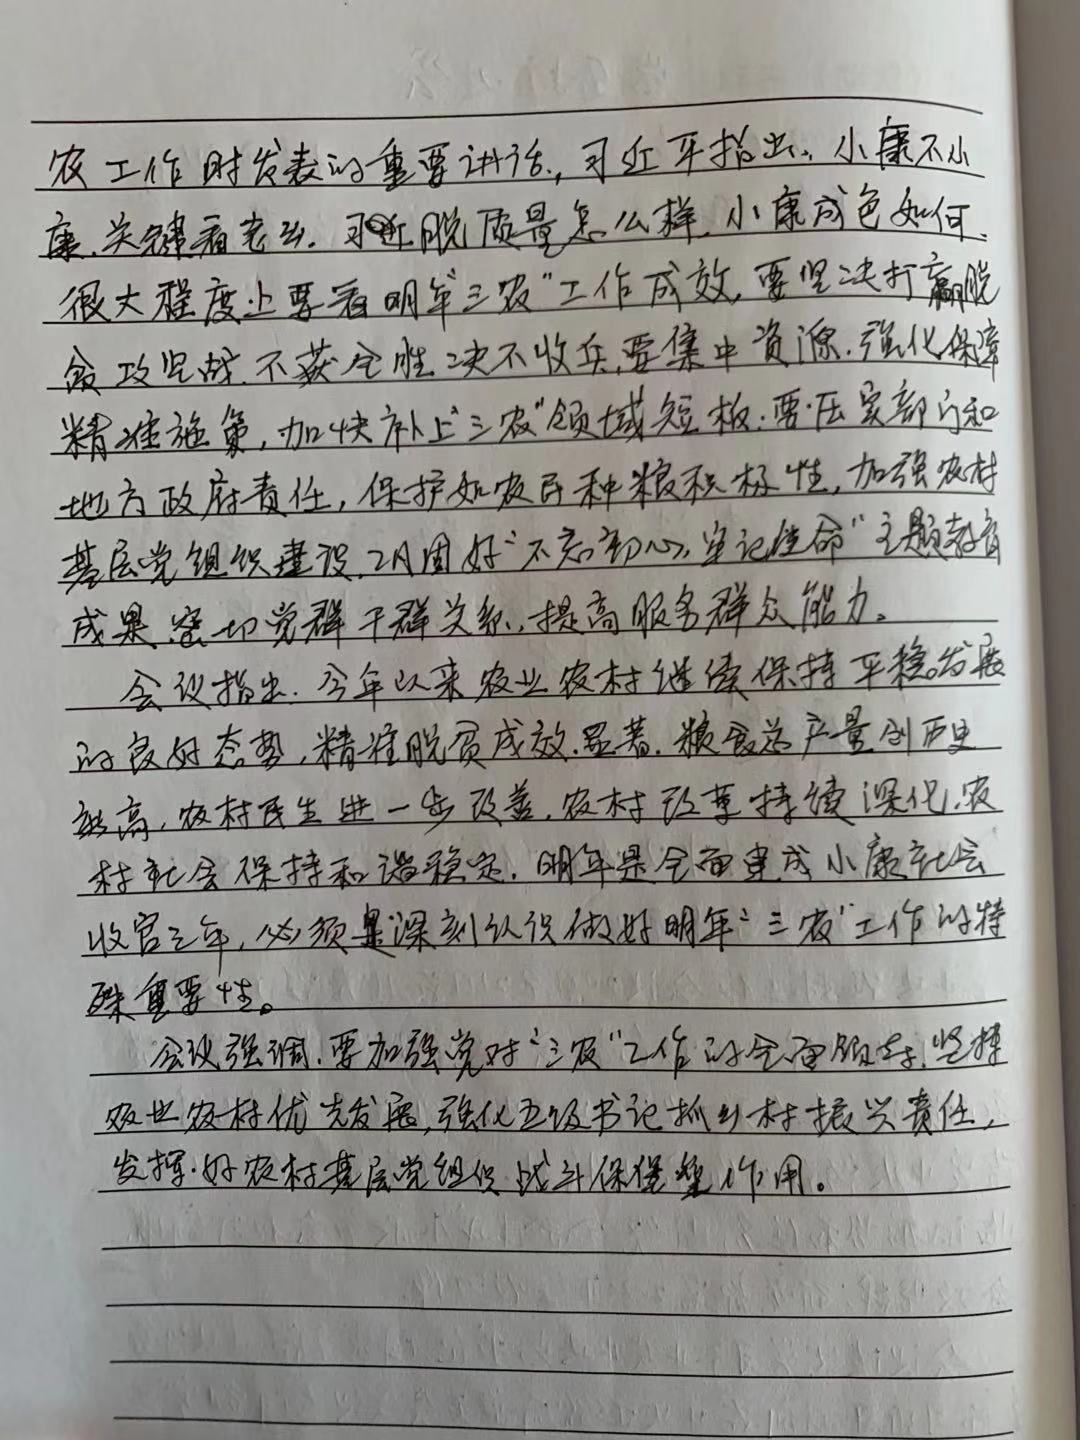 农工作时发表的重要讲话,习近平指出、小康不小
康、关键看老乡.习近脱质量怎么样,小康成色如何、
很大程度上要看明年“三农”工作成效,要坚决打赢脱
贫攻坚战、不获全胜、决不收兵,要集中资源.强化保障
精准施策,加快补上“三农”领域短板;要压实部门和
地方政府责任,保护如农民种粮积极性,加强农村
基层党组织建设,巩固好“不忘初心,牢记使命”主题教育
成果,密切党群干群关系,提高服务群众能力。
会议指出.今年以来农业农村继续保持平稳发展
的良好态势,精准脱贫成效显著.粮食总产量创历史
新高,农村民生进一步改善,农村改革持续深化,农
村社会保持和谐稳定.明年是全面建成小康社会
收官之年,必须是深刻认识做好明年“三农”工作的特
殊重要性。
会议强调.要加强党对“三农”工作的全面领导,坚持
农业农村优先发展,强化五级书记抓乡村振兴责任,
发挥好农村基层党组织战斗保堡垒作用。